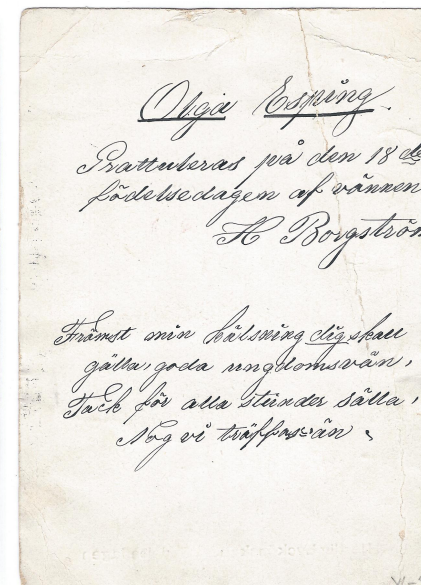 Olga Esping.
Gratuleras på den 18 de
födelsedagen af vännen
H Borgström
Främst min hälsning dig skall
gälla, goda ungdomsvän,
Tack för alla stunder sälla,
Nog vi träffas än.